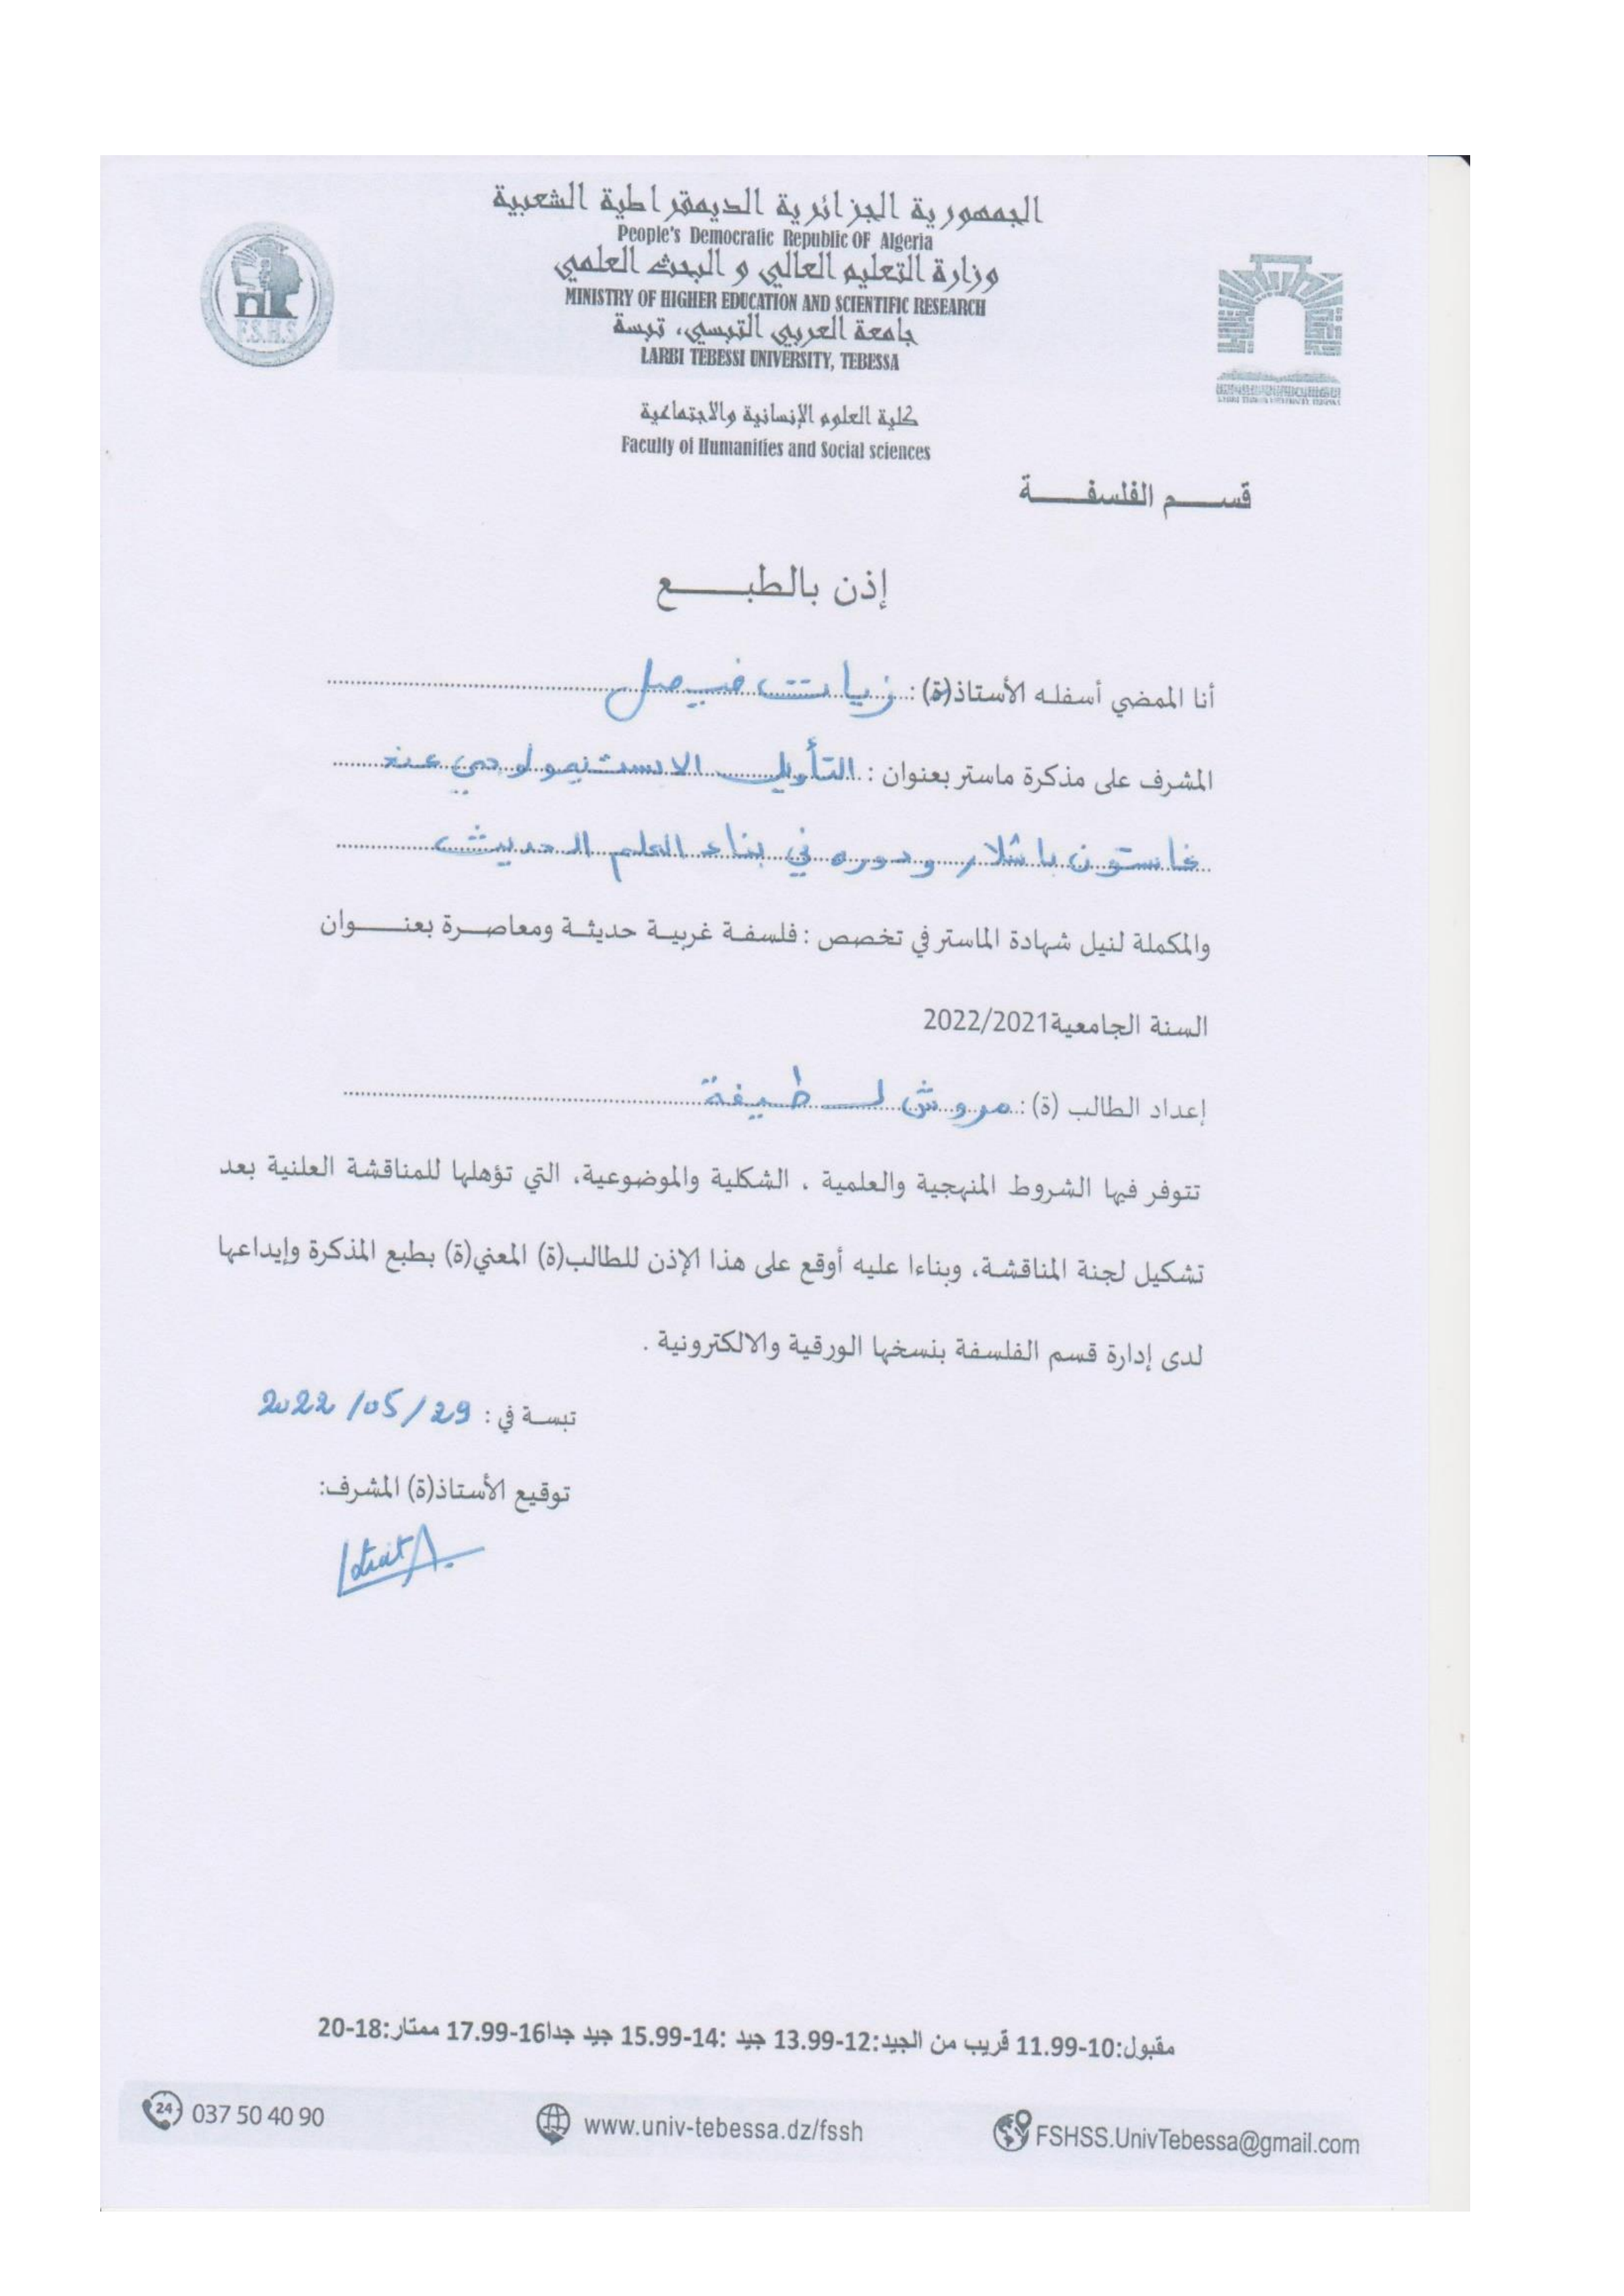 الجمهورية الجزائرية الديمقراطية الشعبية
People's Democratic Republic OF Algeria
وزارة التعليم العالي و البحث العلمي
MINISTRY OF HIGHER EDUCATION AND SCIENTIFIC RESEARCH
جامعة العربي التبسي، تبسة
LARBI TEBESSI UNIVERSITY, TEBESSA
F.S.H.S
كلية العلوم الإنسانية والاجتماعية
Faculty of Humanities and Social sciences
قسم الفلسفة
إذن بالطبع
أنا الممضي أسفله الأستاذ(ة) : زيات فيصل
المشرف على مذكرة ماستر بعنوان : التأويل الابستيمولوجي عند
غاستون باشلار ودوره في بناء العلم الحديث
والمكملة لنيل شهادة الماستر في تخصص : فلسفة غربية حديثة ومعاصرة بعنوان
السنة الجامعية 2022/2021
إعداد الطالب (ة) : مروش لطيفة
تتوفر فيها الشروط المنهجية والعلمية ، الشكلية والموضوعية، التي تؤهلها للمناقشة العلنية بعد
تشكيل لجنة المناقشة، وبناءا عليه أوقع على هذا الإذن للطالب(ة) المعني(ة) بطبع المذكرة وإيداعها
لدى إدارة قسم الفلسفة بنسخها الورقية والالكترونية .
تبسة في : 29/05/2022
توقيع الأستاذ(ة) المشرف:
مقبول:10-11.99 قريب من الجيد:12-13.99 جيد :14-15.99 جيد جدا16-17.99 ممتار:18-20
24 037 50 40 90
www.univ-tebessa.dz/fssh
FSHSS.UnivTebessa@gmail.com